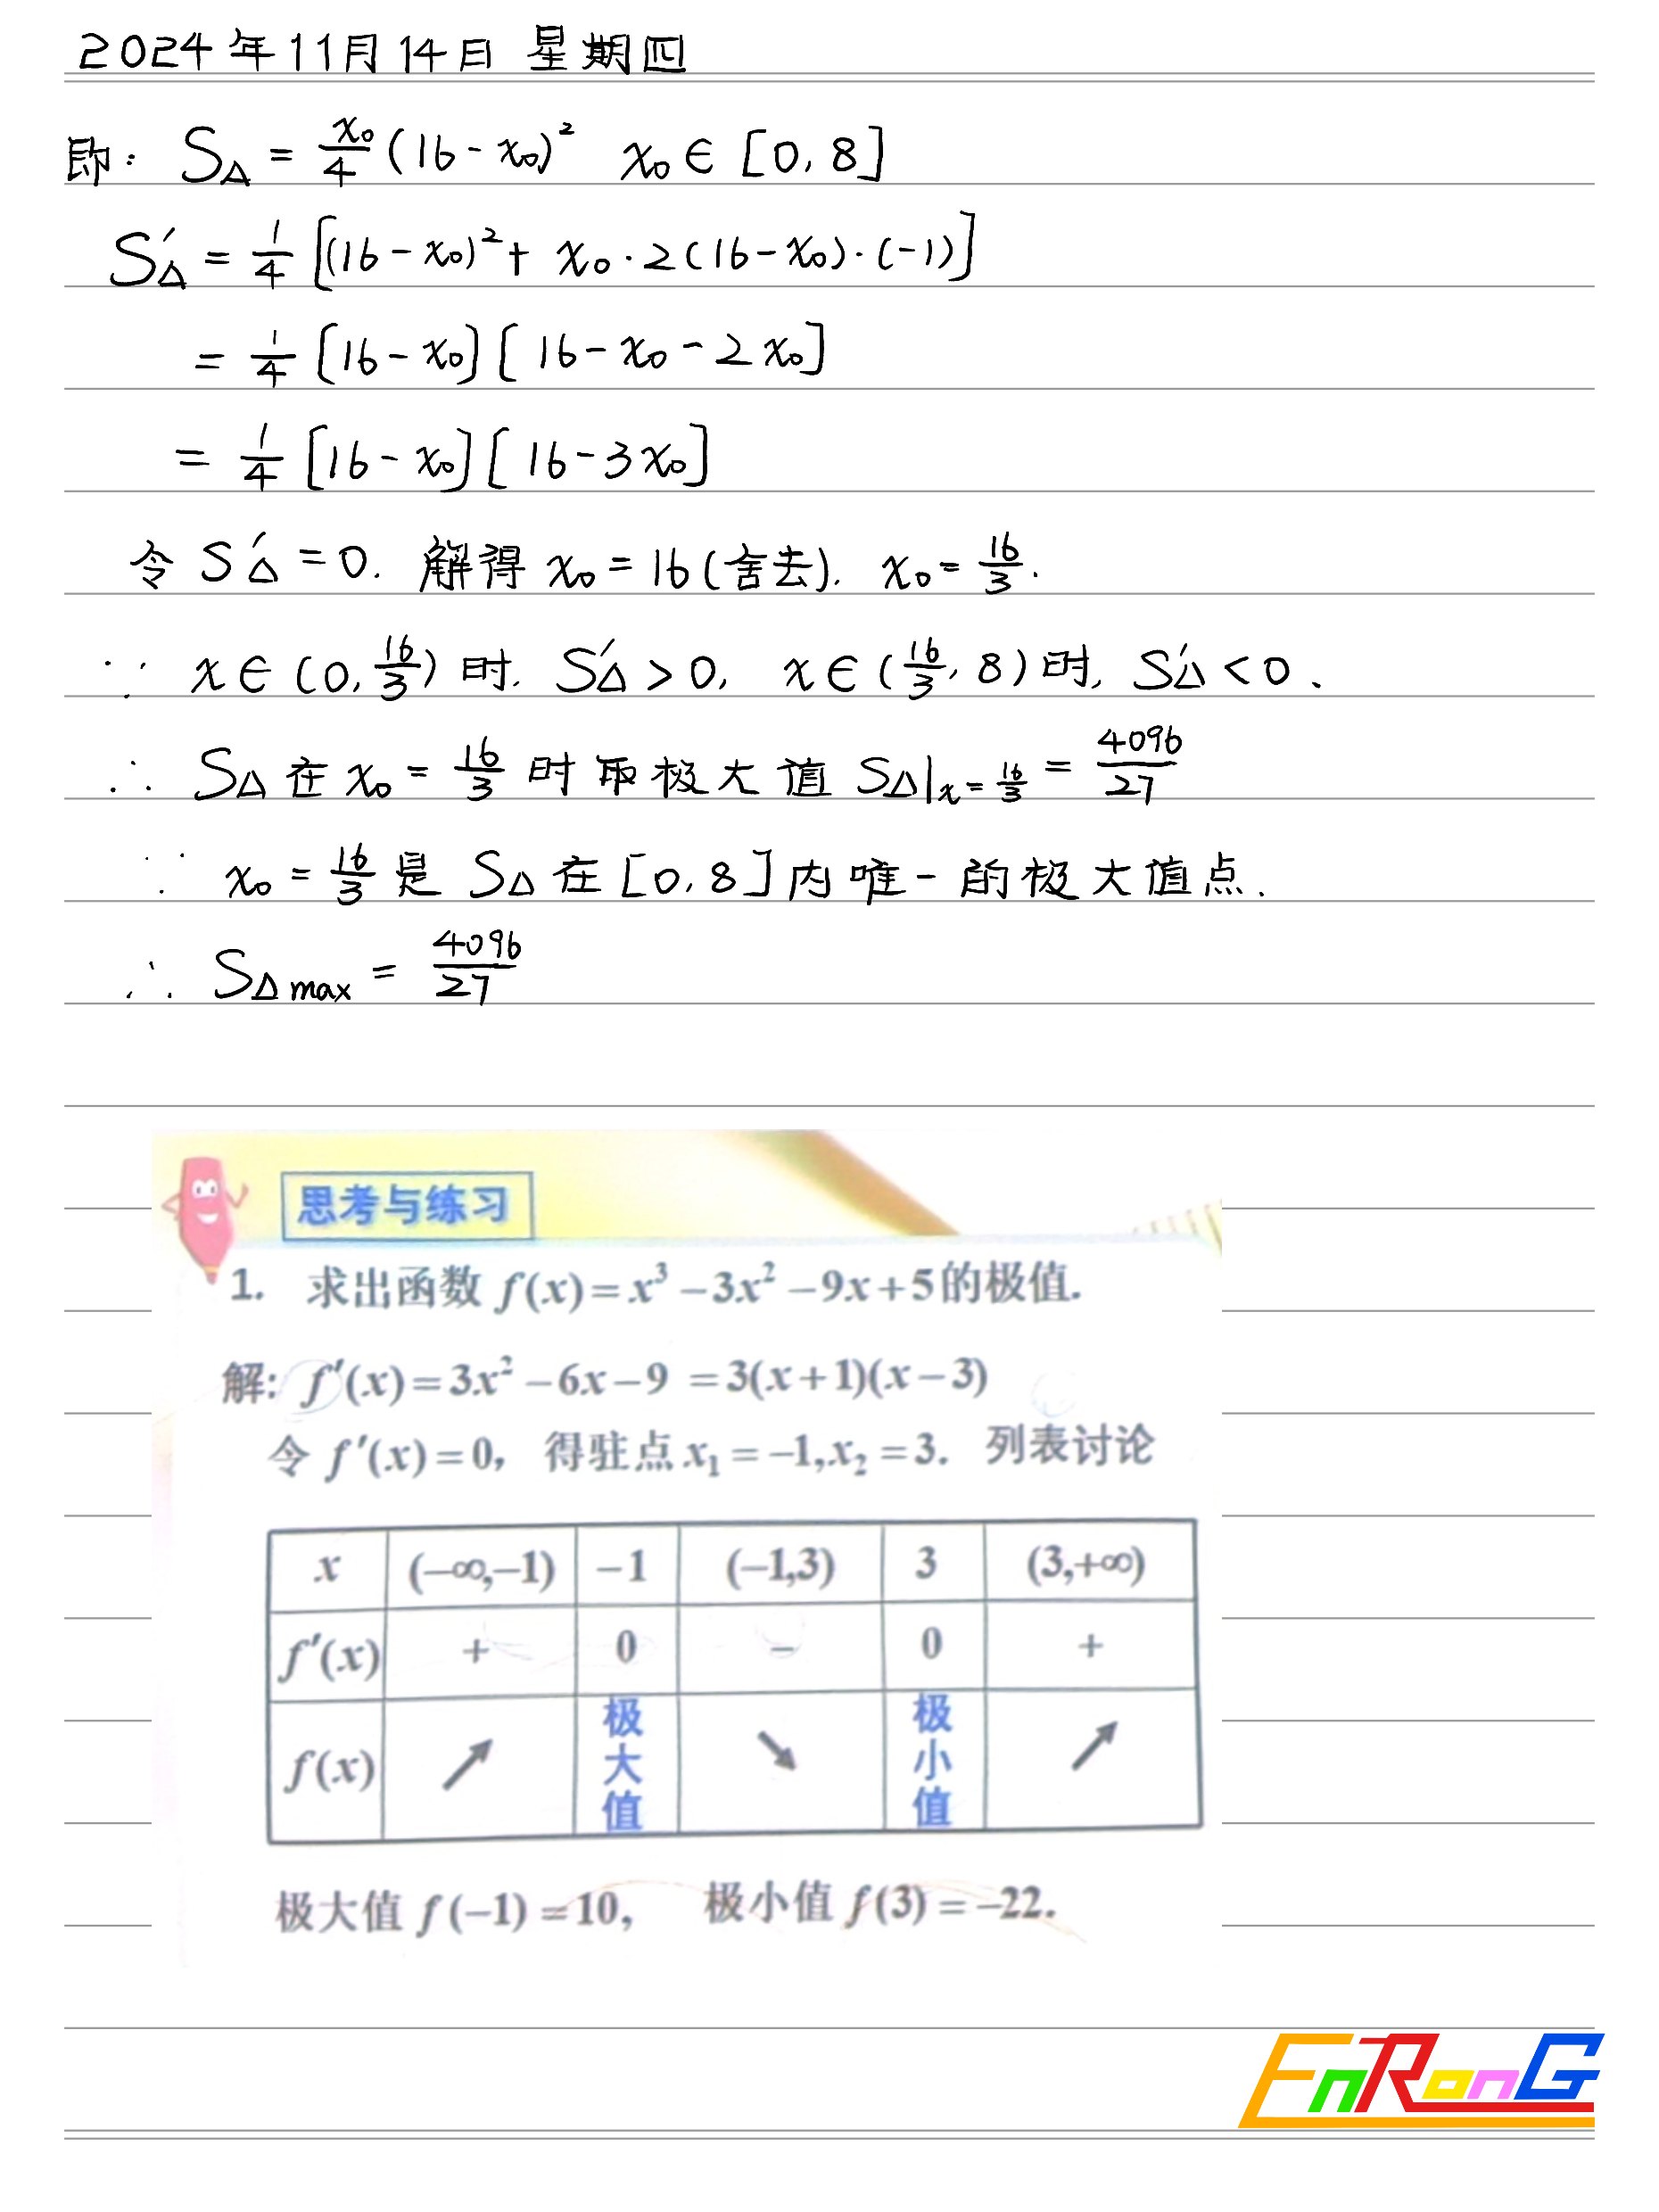 2024年11月14日 星期四
即: S△ = x₀/4 (16-x₀)² x₀∈[0,8]
S△′ = 1/4 [(16-x₀)²+ x₀·2(16-x₀)·(-1)]
= 1/4 [16-x₀][16-x₀-2x₀]
= 1/4 [16-x₀][16-3x₀]
令 S△′=0. 解得 x₀=16(舍去). x₀=16/3.
∵ x∈(0,16/3)时, S△′>0, x∈(16/3,8)时, S△′<0、
∴ S△在 x₀=16/3 时取极大值 S△|x=16/3 = 4096/27
∵ x₀=16/3 是 S△在[0,8]内唯一的极大值点.
∴ S△max = 4096/27
思考与练习
1. 求出函数 f(x)=x³-3x²-9x+5的极值.
解: f′(x)=3x²-6x-9 =3(x+1)(x-3)
令 f′(x)=0, 得驻点 x₁=-1,x₂=3. 列表讨论
x (-∞,-1) -1 (-1,3) 3 (3,+∞)
f′(x) + 0 - 0 +
f(x) ↗ 极大值 ↘ 极小值 ↗
极大值 f(-1)=10, 极小值 f(3)=-22.
EnRonG